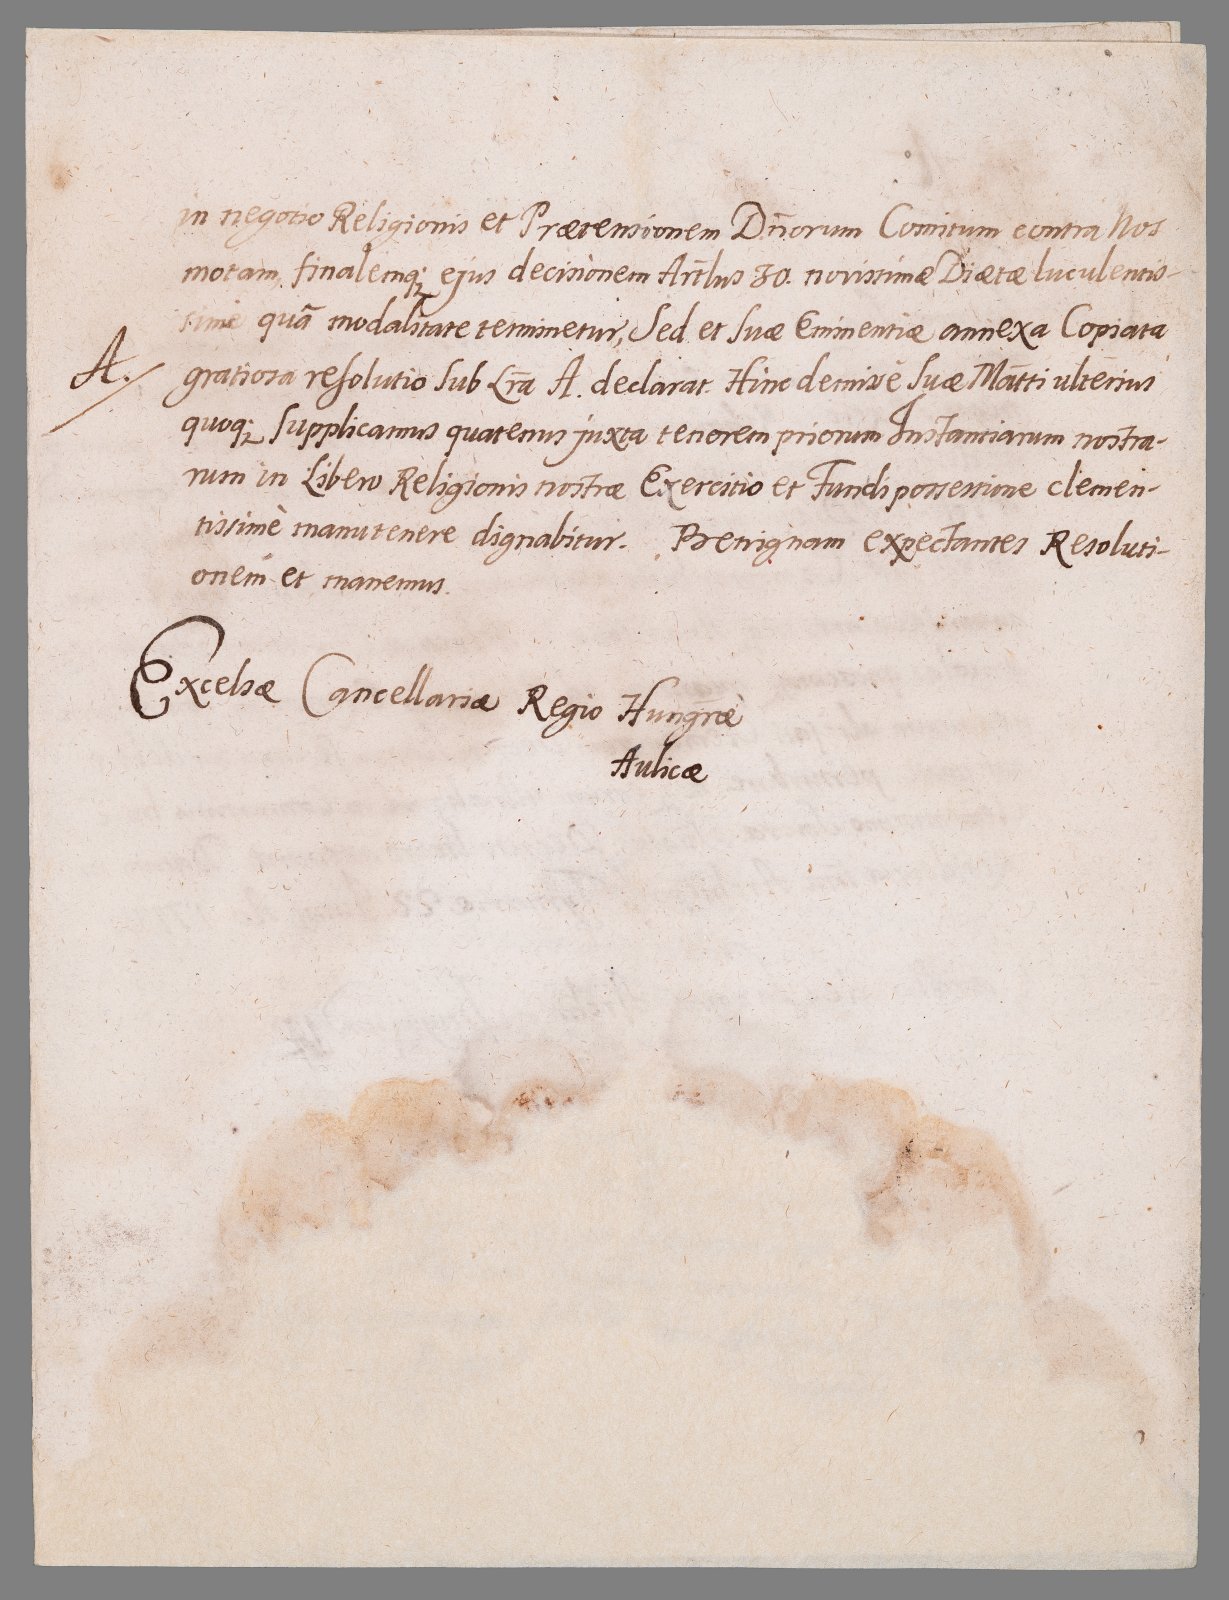 in negotio Religionis et Prætensionem Dn̄orum Comitum contra Nos
motam, finalemq; ejus decisionem Artlus 30. novissimæ Diætæ luculentis-
simè quā modalitate terminetur, Sed et Suæ Eminentiæ annexa Copiata
A. gratiosa resolutio sub Lr̄a A. declarat. Hinc demissè Suæ Mātti ulterius
quoq; supplicamus quatenus juxta tenorem priorum Instantiarum nostra-
rum in Libero Religionis nostræ Exercitio et Fundi possessione clemen-
tissimè manutenere dignabitur. Benignam expectantes Resoluti-
onem et manemus.
Excelsæ Cancellariæ Regio Hungræ
Aulicæ